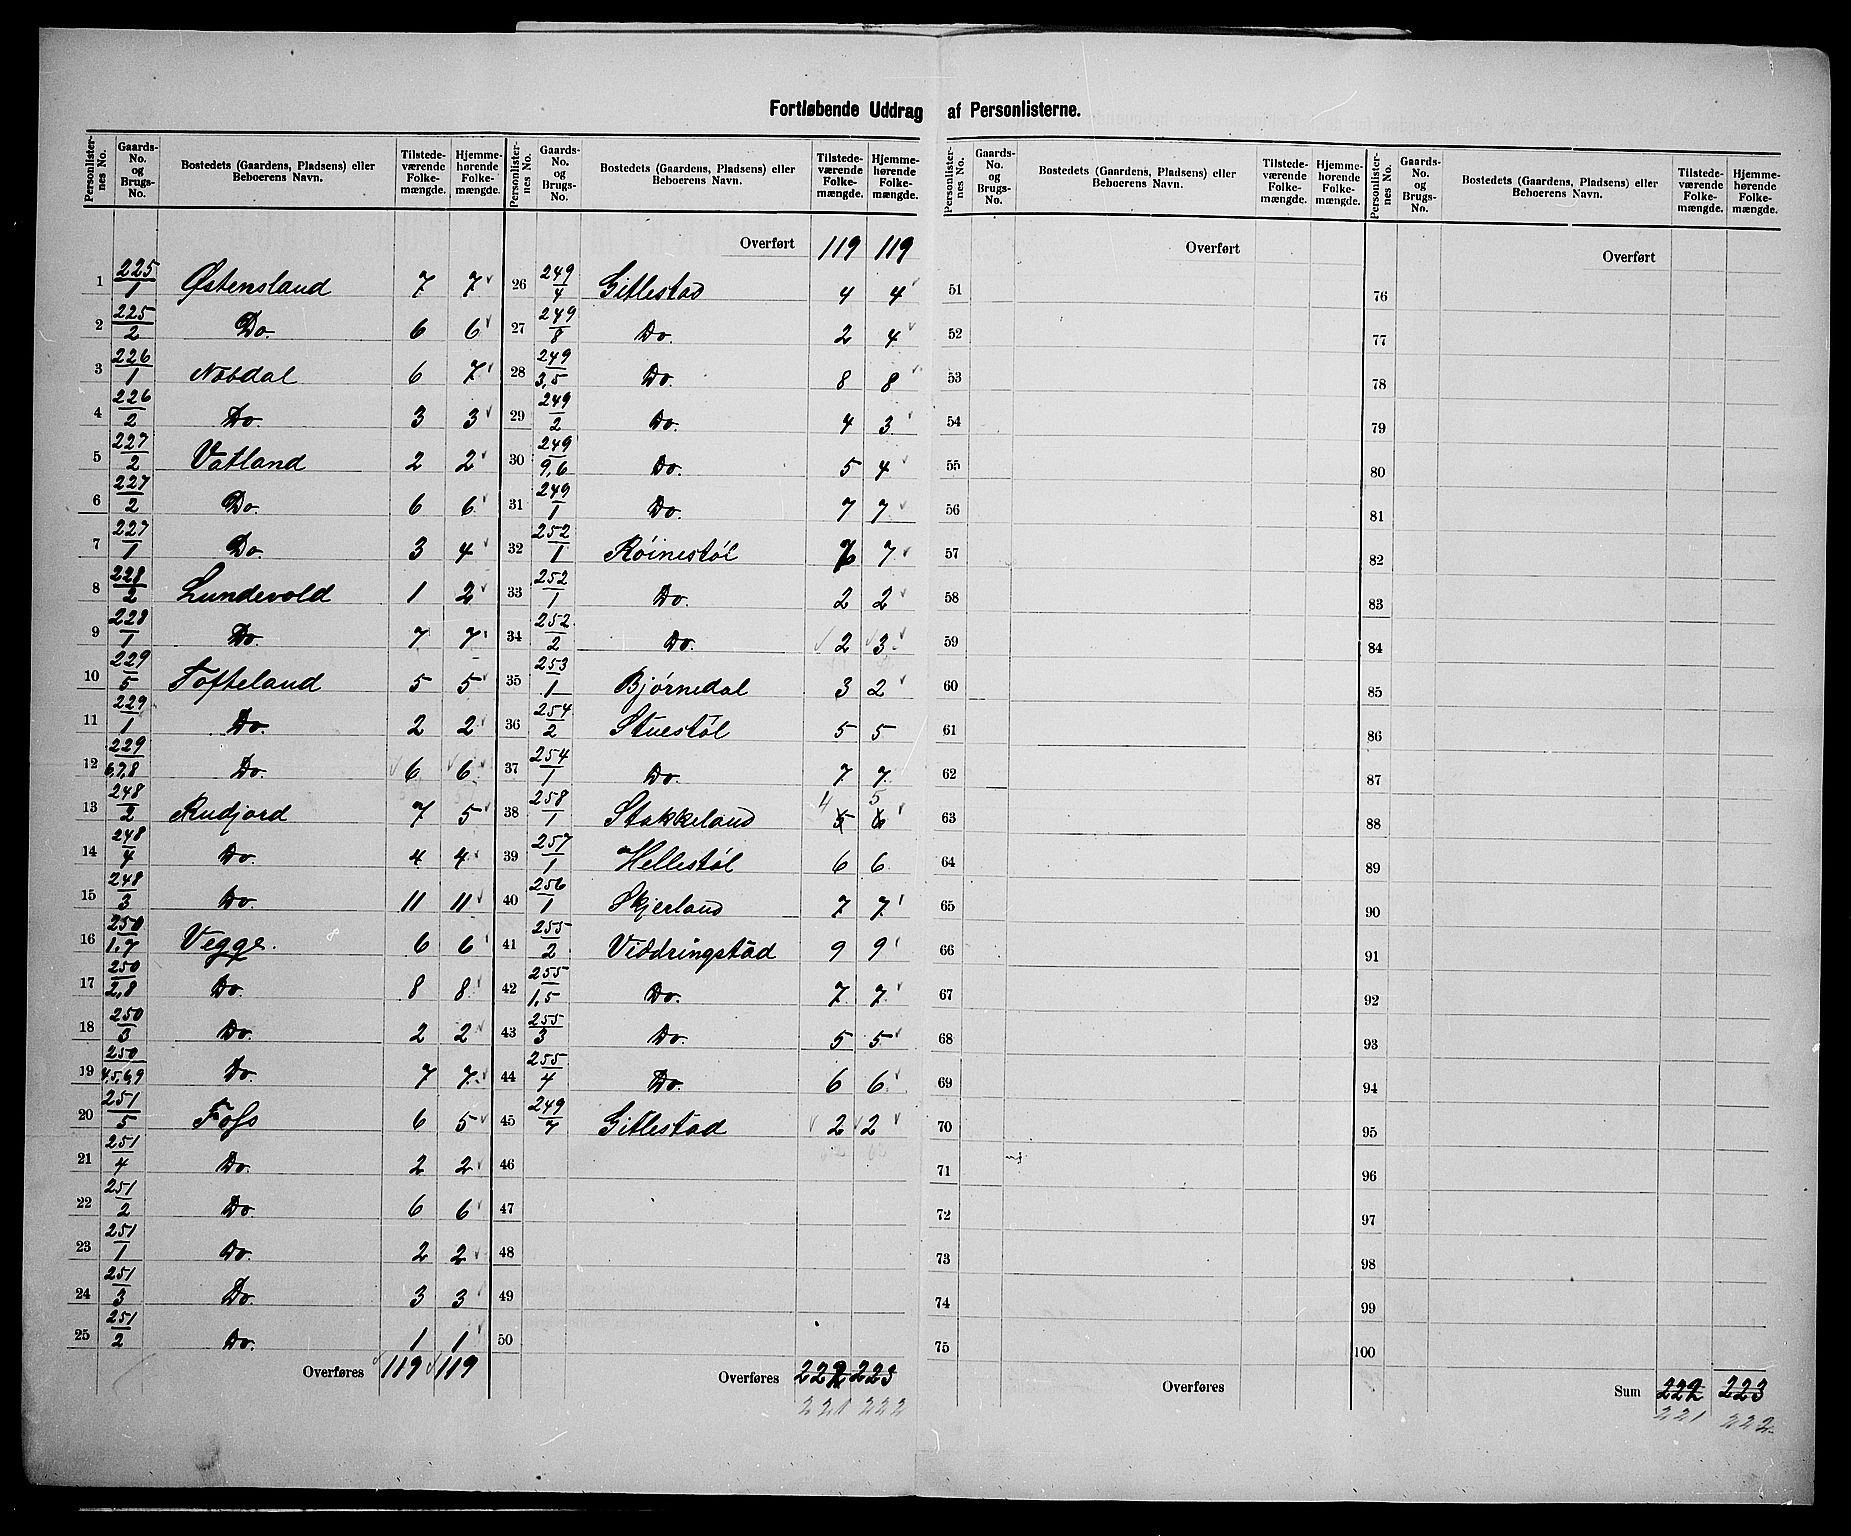 Fortløbende Uddrag af Personlisterne.
Personlisternes No. | Gaards-No. og Brugs-No. | Bostedets (Gaardens, Pladsen) eller Beboerens Navn. | Tilstedeværende Folkemængde. | Hjemmehørende Folkemængde.
1 225/1 Østensland 7 7
2 225/2 Do. 6 6
3 226/1 Nobdal 6 7
4 226/2 Do. 3 3
5 227/2 Vatland 2 2
6 227/2 Do. 6 6
7 227/1 Do. 3 4
8 228/2 Lundevold 1 2
9 228/1 Do. 7 7
10 229/5 Tofteland 5 5
11 229/1 Do. 2 2
12 229/6,7,8 Do. 6 6
13 248/2 Rudjord 7 5
14 248/4 Do. 4 4
15 248/3 Do. 11 11
16 250/1,7 Vegge. 6 6
17 250/2,8 Do. 8 8
18 250/3 Do. 2 2
19 250/4,5,6,9 Do. 7 7
20 251/5 Foss 6 5
21 251/4 Do. 2 2
22 251/2 Do. 6 6
23 251/1 Do. 2 2
24 251/3 Do. 3 3
25 251/2 Do. 1 1
Overføres 119 119
Personlisternes No. | Gaards-No. og Brugs-No. | Bostedets (Gaardens, Pladsen) eller Beboerens Navn. | Tilstedeværende Folkemængde. | Hjemmehørende Folkemængde.
Overført 119 119
26 249/4 Gitlestad 4 4
27 249/8 Do. 2 4
28 249/3,5 Do. 8 8
29 249/2 Do. 4 3
30 249/9,6 Do. 5 4
31 249/1 Do. 7 7
32 252/1 Røinestøl 7 7
33 252/1 Do. 2 2
34 252/2 Do. 2 3
35 253/1 Bjørnedal 3 2
36 254/2 Stuestøl 5 5
37 254/1 Do. 7 7
38 258/1 Stakkeland 4 5 5 6
39 257/1 Hellestøl 6 6
40 256/1 Skjerland 7 7
41 255/2 Viddringstad 9 9
42 255/1,5 Do. 7 7
43 255/3 Do. 5 5
44 255/4 Do. 6 6
45 249/7 Gitlestad 2 2
46
47
48
49
50
Overføres 222 223
221 222
Personlisternes No. | Gaards-No. og Brugs-No. | Bostedets (Gaardens, Pladsen) eller Beboerens Navn. | Tilstedeværende Folkemængde. | Hjemmehørende Folkemængde.
Overført
51
52
53
54
55
56
57
58
59
60
61
62
63
64
65
66
67
68
69
70
71
72
73
74
75
Overføres
Personlisternes No. | Gaards-No. og Brugs-No. | Bostedets (Gaardens, Pladsen) eller Beboerens Navn. | Tilstedeværende Folkemængde. | Hjemmehørende Folkemængde.
Overført
76
77
78
79
80
81
82
83
84
85
86
87
88
89
90
91
92
93
94
95
96
97
98
99
100
Sum 222 223
221 222